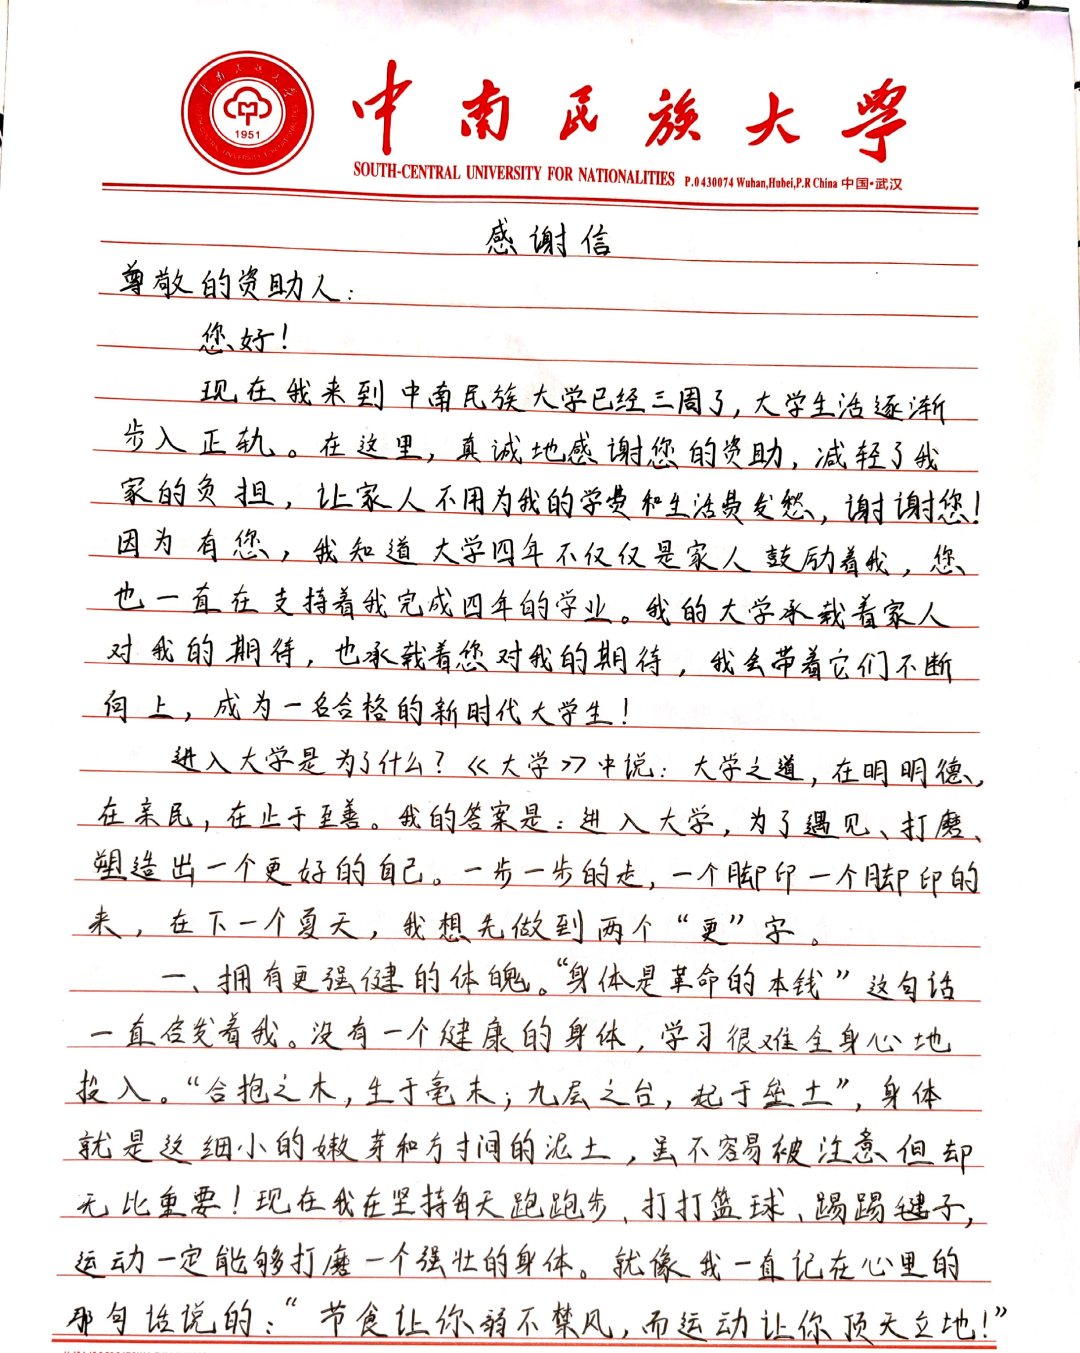 中南民族大學
SOUTH-CENTRAL UNIVERSITY FOR NATIONALITIES P.0430074 Wuhan,Hubei,P.R China 中国·武汉
1951
感谢信
尊敬的资助人：
您好！
现在我来到中南民族大学已经三周了，大学生活逐渐
步入正轨。在这里，真诚地感谢您的资助，减轻了我
家的负担，让家人不用为我的学费和生活费发愁，谢谢您！
因为有您，我知道大学四年不仅仅是家人鼓励着我，您
也一直在支持着我完成四年的学业。我的大学承载着家人
对我的期待，也承载着您对我的期待，我会带着它们不断
向上，成为一名合格的新时代大学生！
进入大学是为了什么？《大学》中说：大学之道，在明明德，
在亲民，在止于至善。我的答案是：进入大学，为了遇见、打磨、
塑造出一个更好的自己。一步一步的走，一个脚印一个脚印的
来，在下一个夏天，我想先做到两个“更”字。
一、拥有更强健的体魄。“身体是革命的本钱”这句话
一直启发着我。没有一个健康的身体，学习很难全身心地
投入。“合抱之木，生于毫末；九层之台，起于垒土”，身体
就是这细小的嫩芽和方寸间的泥土，虽不容易被注意但却
无比重要！现在我在坚持每天跑跑步、打打篮球、踢踢毽子，
运动一定能够打磨一个强壮的身体。就像我一直记在心里的
那句话说的：“节食让你弱不禁风，而运动让你顶天立地！”